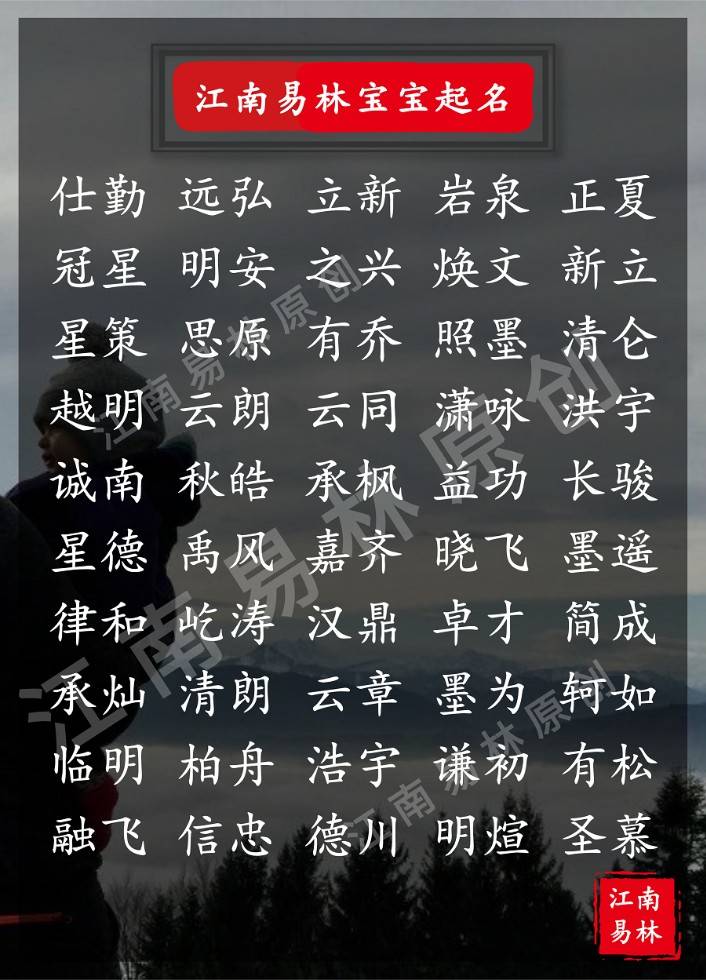 江南易林宝宝起名
仕勤 远弘 立新 岩泉 正夏
冠星 明安 之兴 焕文 新立
星策 思原 有乔 照墨 清仑
越明 云朗 云同 潇咏 洪宇
诚南 秋皓 承枫 益功 长骏
星德 禹风 嘉齐 晓飞 墨遥
律和 屹涛 汉鼎 卓才 简成
承灿 清朗 云章 墨为 轲如
临明 柏舟 浩宇 谦初 有松
融飞 信忠 德川 明煊 圣慕
江南易林原创
江南易林原创
江南易林原创
江南
易林